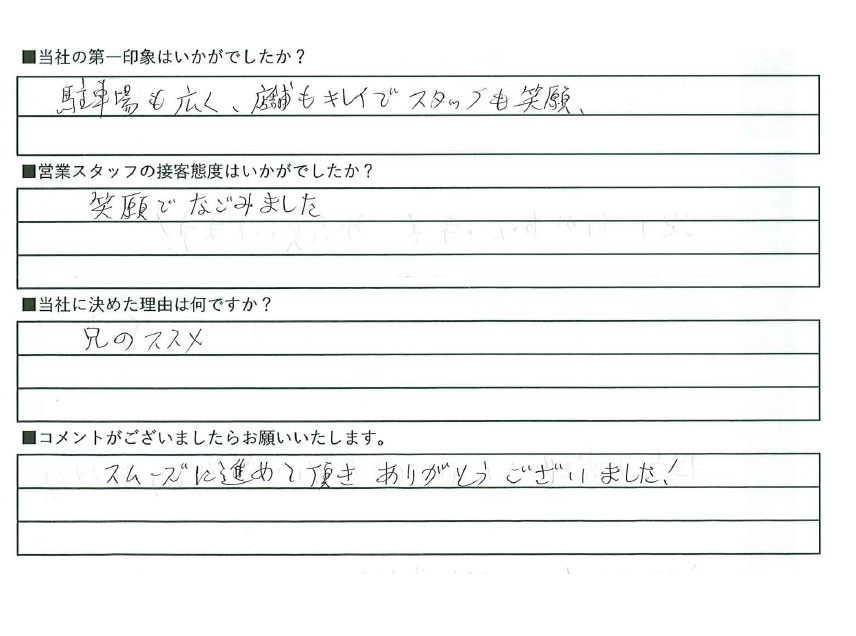 ■当社の第一印象はいかがでしたか？
駐車場も広く、店舗もキレイでスタッフも笑顔、
■営業スタッフの接客態度はいかがでしたか？
笑顔でなごみました
■当社に決めた理由は何ですか？
兄のススメ
■コメントがございましたらお願いいたします。
スムーズに進めて頂きありがとうございました！